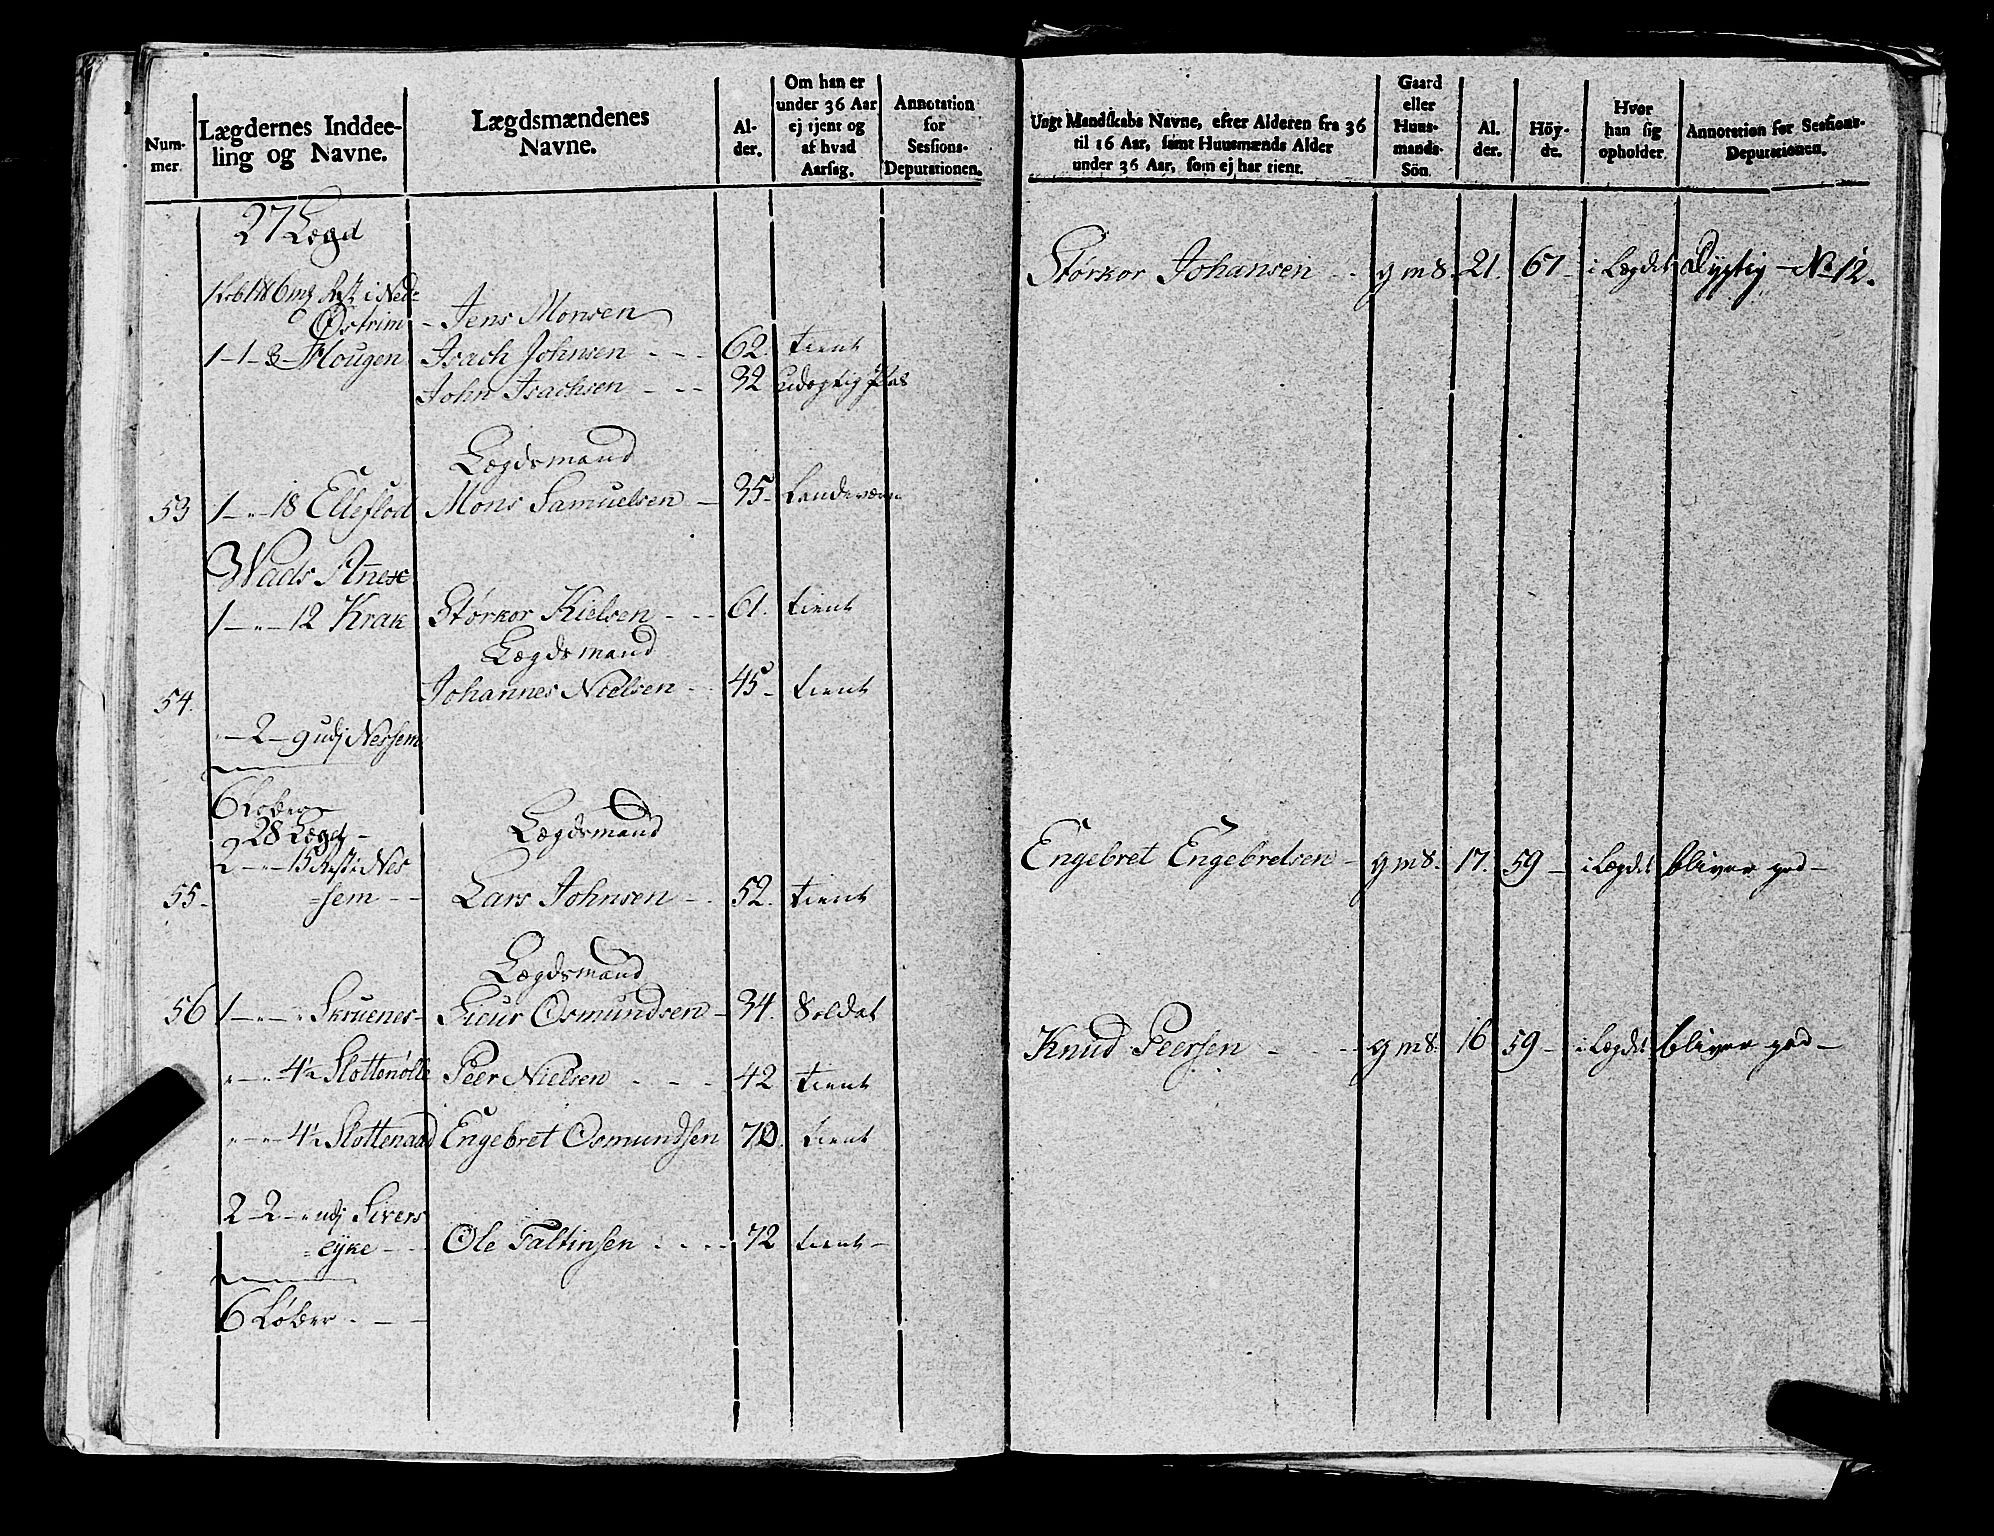 Num-
mer.
Lægdernes Inddee-
ling og Navne.
Lægdsmændenes
Navne.
Al-
der.
Om han er
under 36 Aar
ej tjent og
af hvad
Aarsag.
Annotation
for
Sessions-
Deputationen.
27 Lægd
Rest i Ned=
Østrim - Jens Monsen
1-1-3- Hougen Isach Johnsen - - 62. tient
John Isachsen - - 32 udøgtig
Lægdsmand
53 1-"-18 Elleflod Mons Samuelsen - 35- Landeværn
Wads Anex
1-"-12 Krak Størkor Kielsen - - 61. tient
Lægdsmand
54. Johannes Nielsen - 45- tient
"-2-9 udj Nessem
6 Løber
28 Lægd - Lægdsmand
2-"-15 Rest i Nes
55- =sem - - Lars Johnsen - 52. tient
Lægdsmand
56 1-"-" Skruenes- Siur Osmundsen - 34. Soldat
"-"-4½ Slottenølle Peer Nielsen - - - 42 tient
"-"-4½ Slottenaad Engebret Osmundsen 70. tient
2-2-" udj Sivers
=eyke - - Ole Faltinsen - - - 72 tient-
6 Løber - -
Ungt Mandskabs Navne, efter Alderen fra 36
til 16 Aar, samt Huusmænds Alder
under 36 Aar, som ej har tient.
Gaard
eller
Huus-
mands-
Sön.
Al.
der.
Höy-
de.
Hvor
han sig
opholder.
Annotation for Sessions-
Deputationen.
Størkor Johansen - - g m s. 21. 67- i Lægdet Dygtig - No 12.
Engebret Engebretsen - g m s. 17. 59- i Lægdet bliver god-
Knud Peersen - - - g m s. 16 59- i Lægdet bliver god-